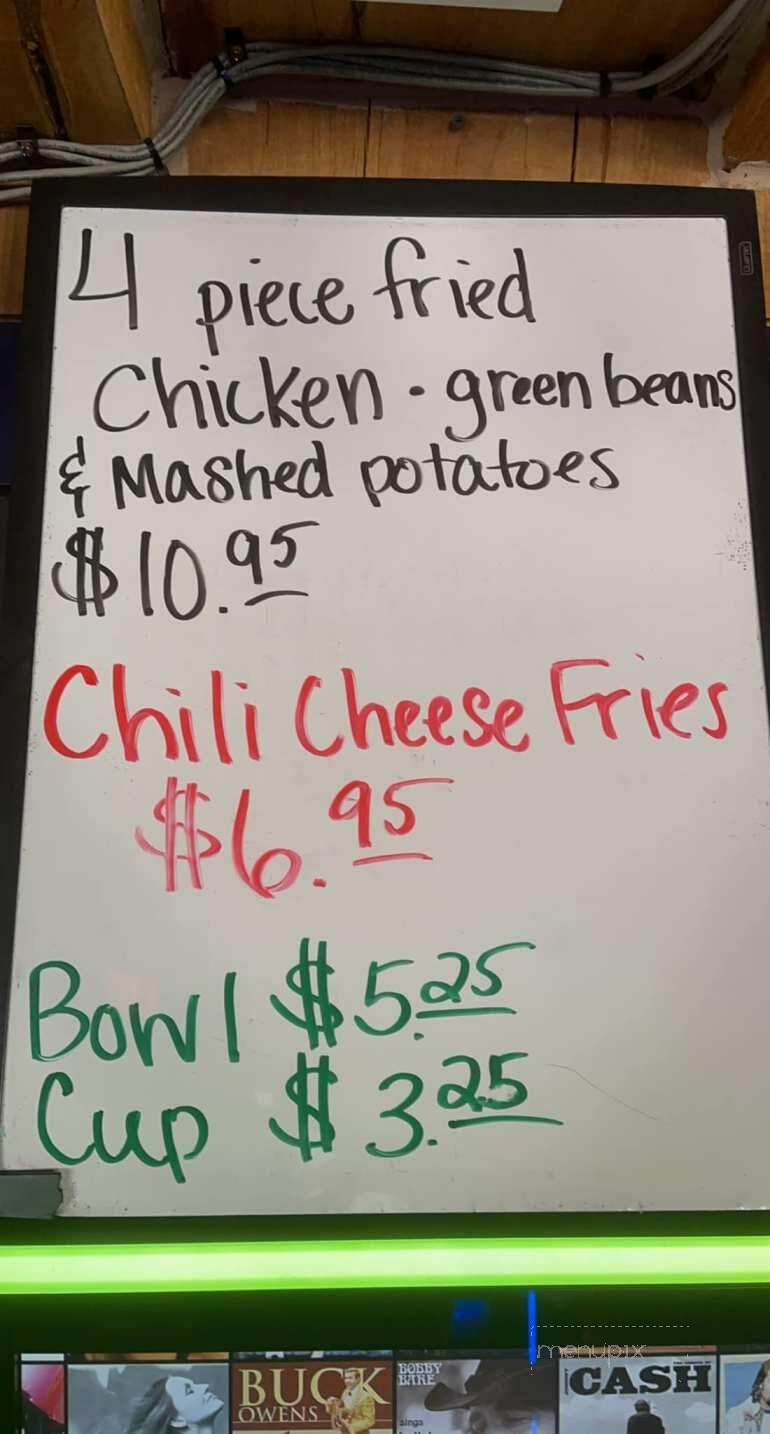 4 piece fried
Chicken · green beans
& Mashed potatoes
$10.95
Chili Cheese Fries
$6.95
Bowl $5.25
Cup $3.25
menupix
BUCK
OWENS
BOBBY
BARE
sings
CASH